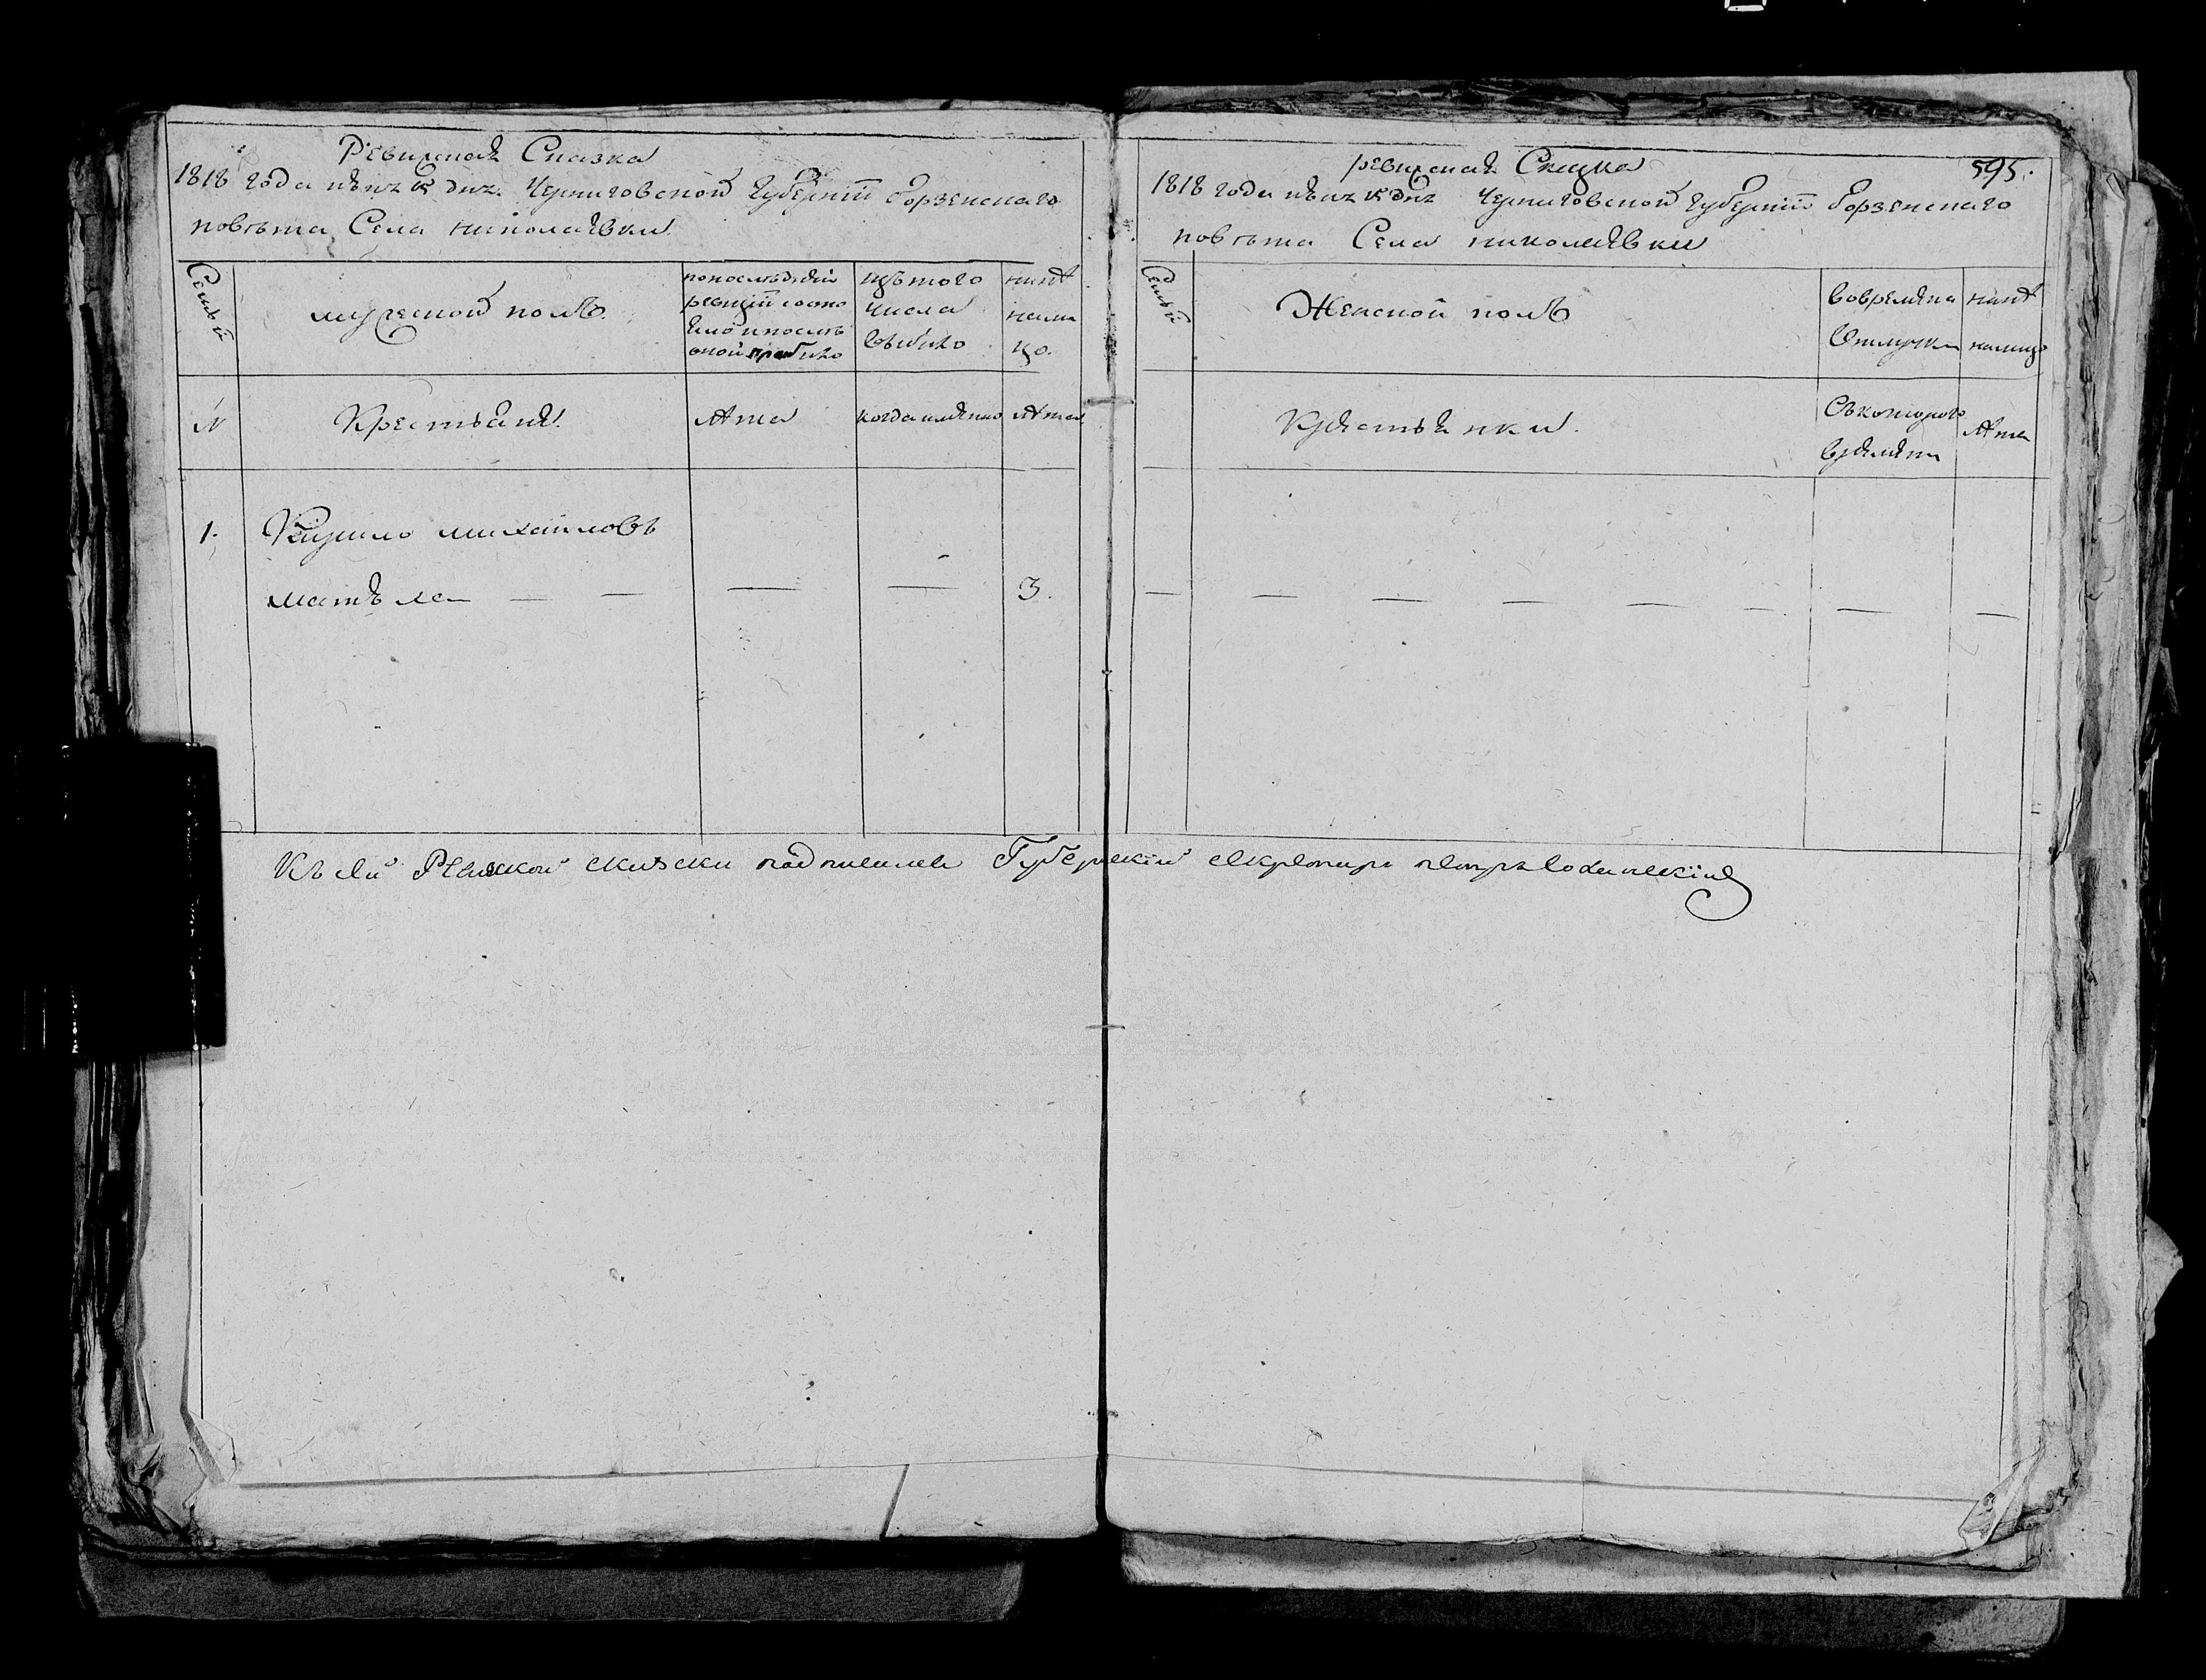 Ревизская Сказка
1818 года Черниговской Губернии борзенского
повѣта Села николаевки
Семьи
мужеской полъ
попоследней
ревизии состо
яло и после
оной прибыло
изътого
числа
выбыло
ныне
нали
цо.
N
Крестьяне
лета
когда имянно
лета
1.
Кирило михайловъ
матѣ
3.
595.
ревизская Сказка
1818 года Черниговской губернии борзенского
повѣта Села николаевки
Семьи
Женской полъ
вовремянна
Отлучки
ныне
налицо
Крестьянки.
Съкоторого
времяни
лета
Къ сей Ревизской сказки подписался Губернский секретарь петръ